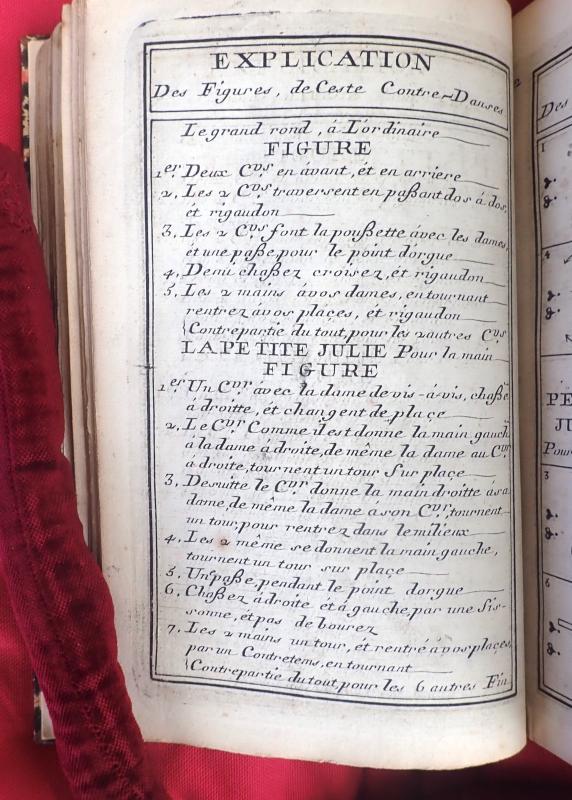 EXPLICATION
Des Figures, de Ceste Contre-Danses
Le grand rond, á L'ordinaire
FIGURE
1.er Deux C.vrs en ávant, ét en arriere
2, Les 2 C.vrs traversent en paßant dos á dos,
ét rigaudon
3, Les 2 C.vrs font la poußette ávec les dames,
ét une paße, pour le point d'orgue
4, Demi chaßez croisez, ét rigaudon
5, Les 2 mains ávos dames, en tournant
rentrez ávos plaçes, ét rigaudon
Contrepartie du tout, pour les 2 autres C.vrs
LA PETITE JULIE Pour la main
FIGURE
1.er Un C.vr ávec la dame de vis-á-vis, chaßé
á droitte, ét changent de plaçe
2, Le C.vr Comme il est donne la main gauch
á la dame á droite, de même la dame au C.vr
á droite, tournent un tour Sur plaçe
3, De suitte le C.vr donne la main droitte ása
dame, de même la dame a son C.vr, tournent
un tour, pour rentrez dans le milieux
4, Les 2 même se donnent la main gauche,
tournent un tour sur plaçe
5, Un paße, pendant le point dorgue
6, Chaßez á droite et á gauche, par une Sis-
sonne, ét pas de bourez
7, Les 2 mains un tour, ét rentré á vos plaçes,
par un Contretems, en tournant
Contrepartie du tout, pour les 6 autres Fin
Des
1
4
PE
JU
Pour
3
6